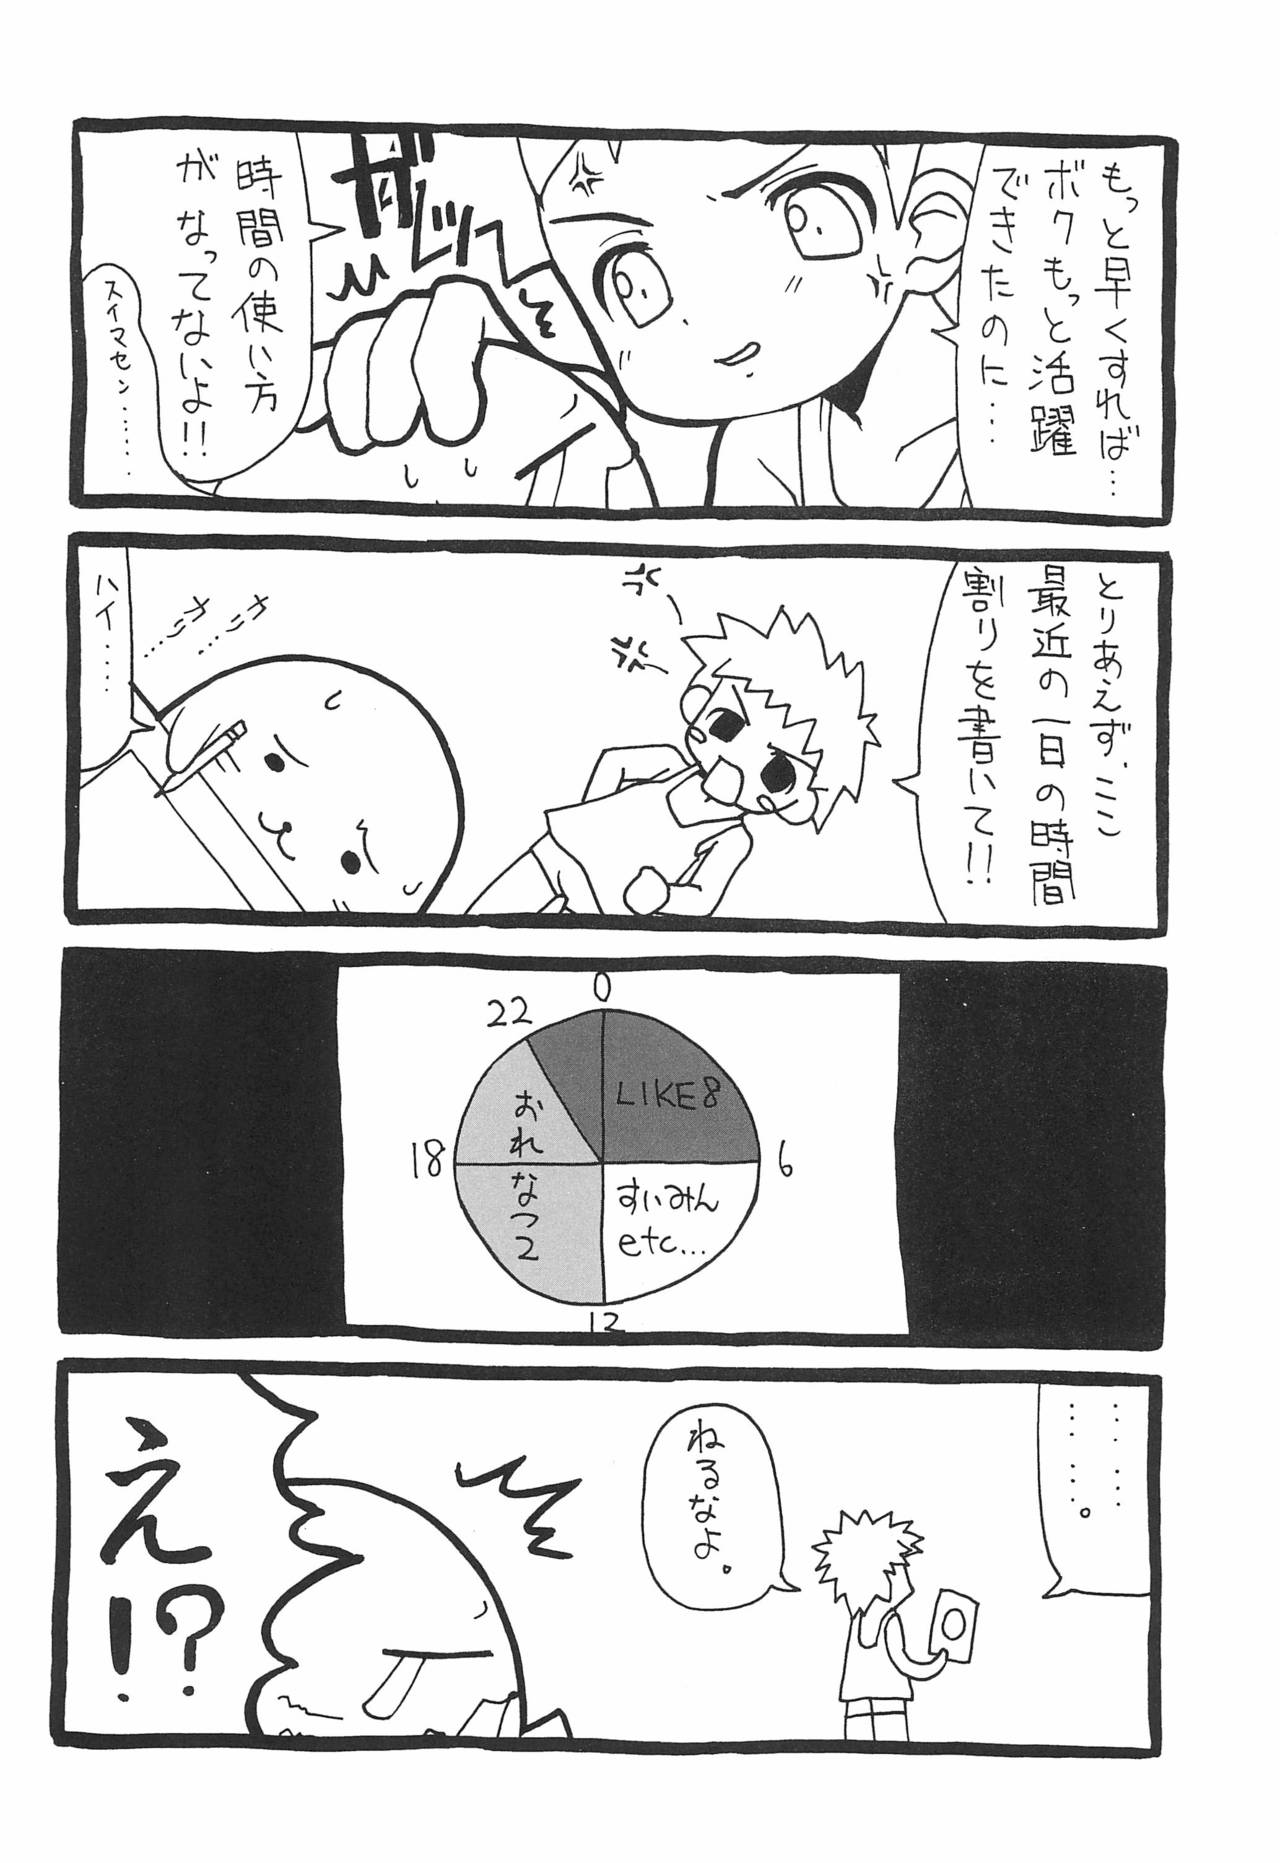 もっと早くすれば…
ボクもっと活躍
できたのに…
時間の使い方
が なってないよ!!
スイマセン………
とりあえず、ここ
最近の一日の時間
割りを書いて!!
ハイ……
0
22
LIKE8
おれ
18
6
なつ2
すいみん
etc...
12
……
……。
ねるなよ。
え!?